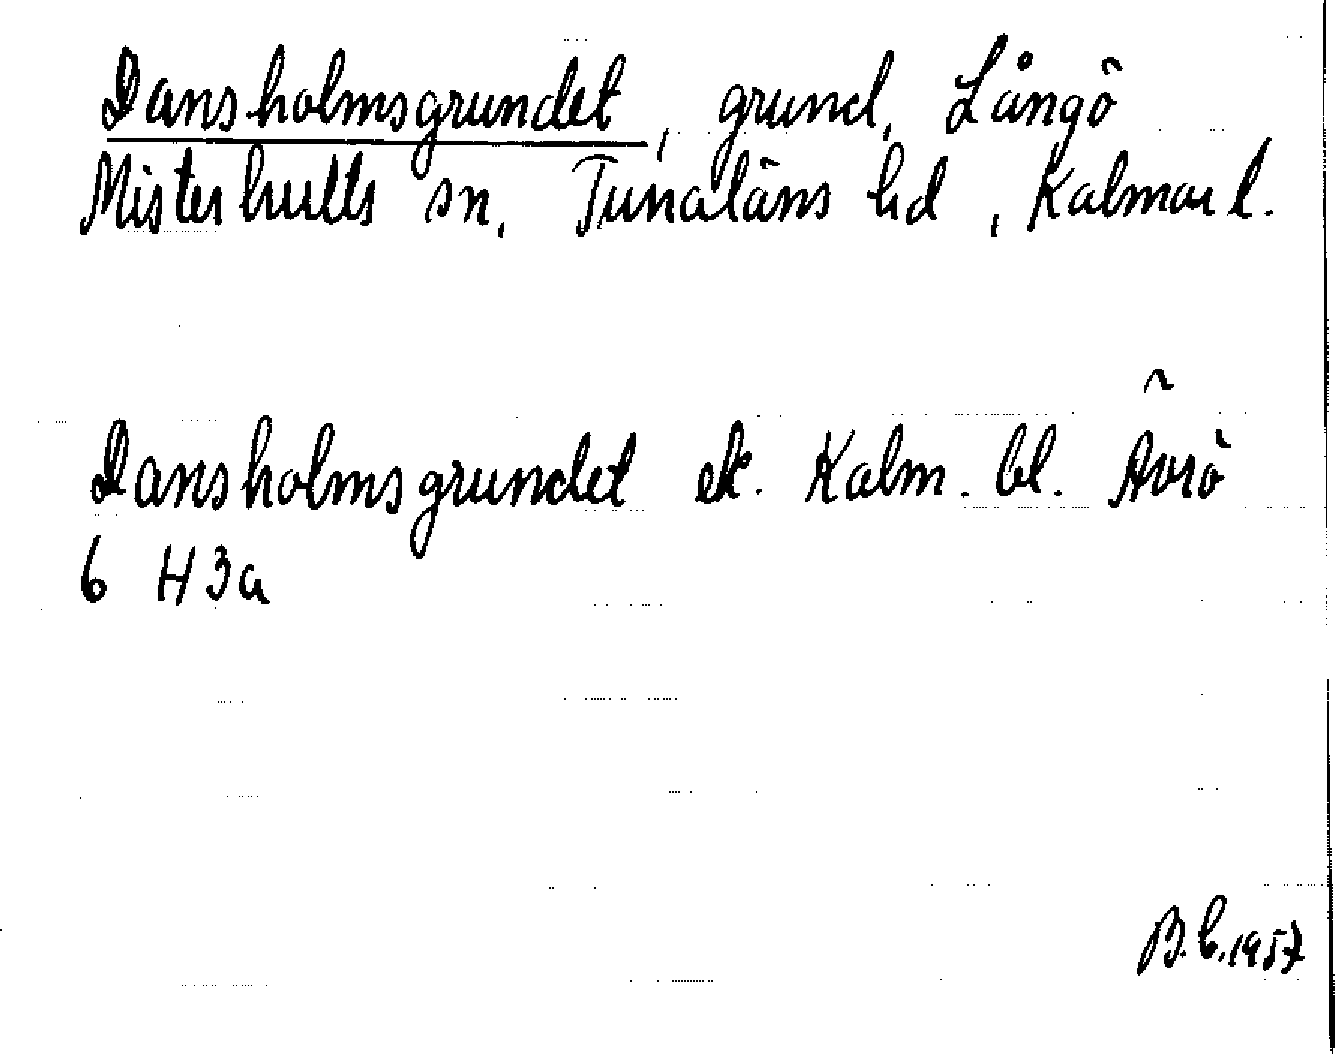 Dansholmsgrundet, grund, Långö
Misterhults sn, Tunaläns hd, Kalmar l.
Dansholmsgrundet ek. Kalm. bl. Ävrö
6 H 3a
B.C. 1957